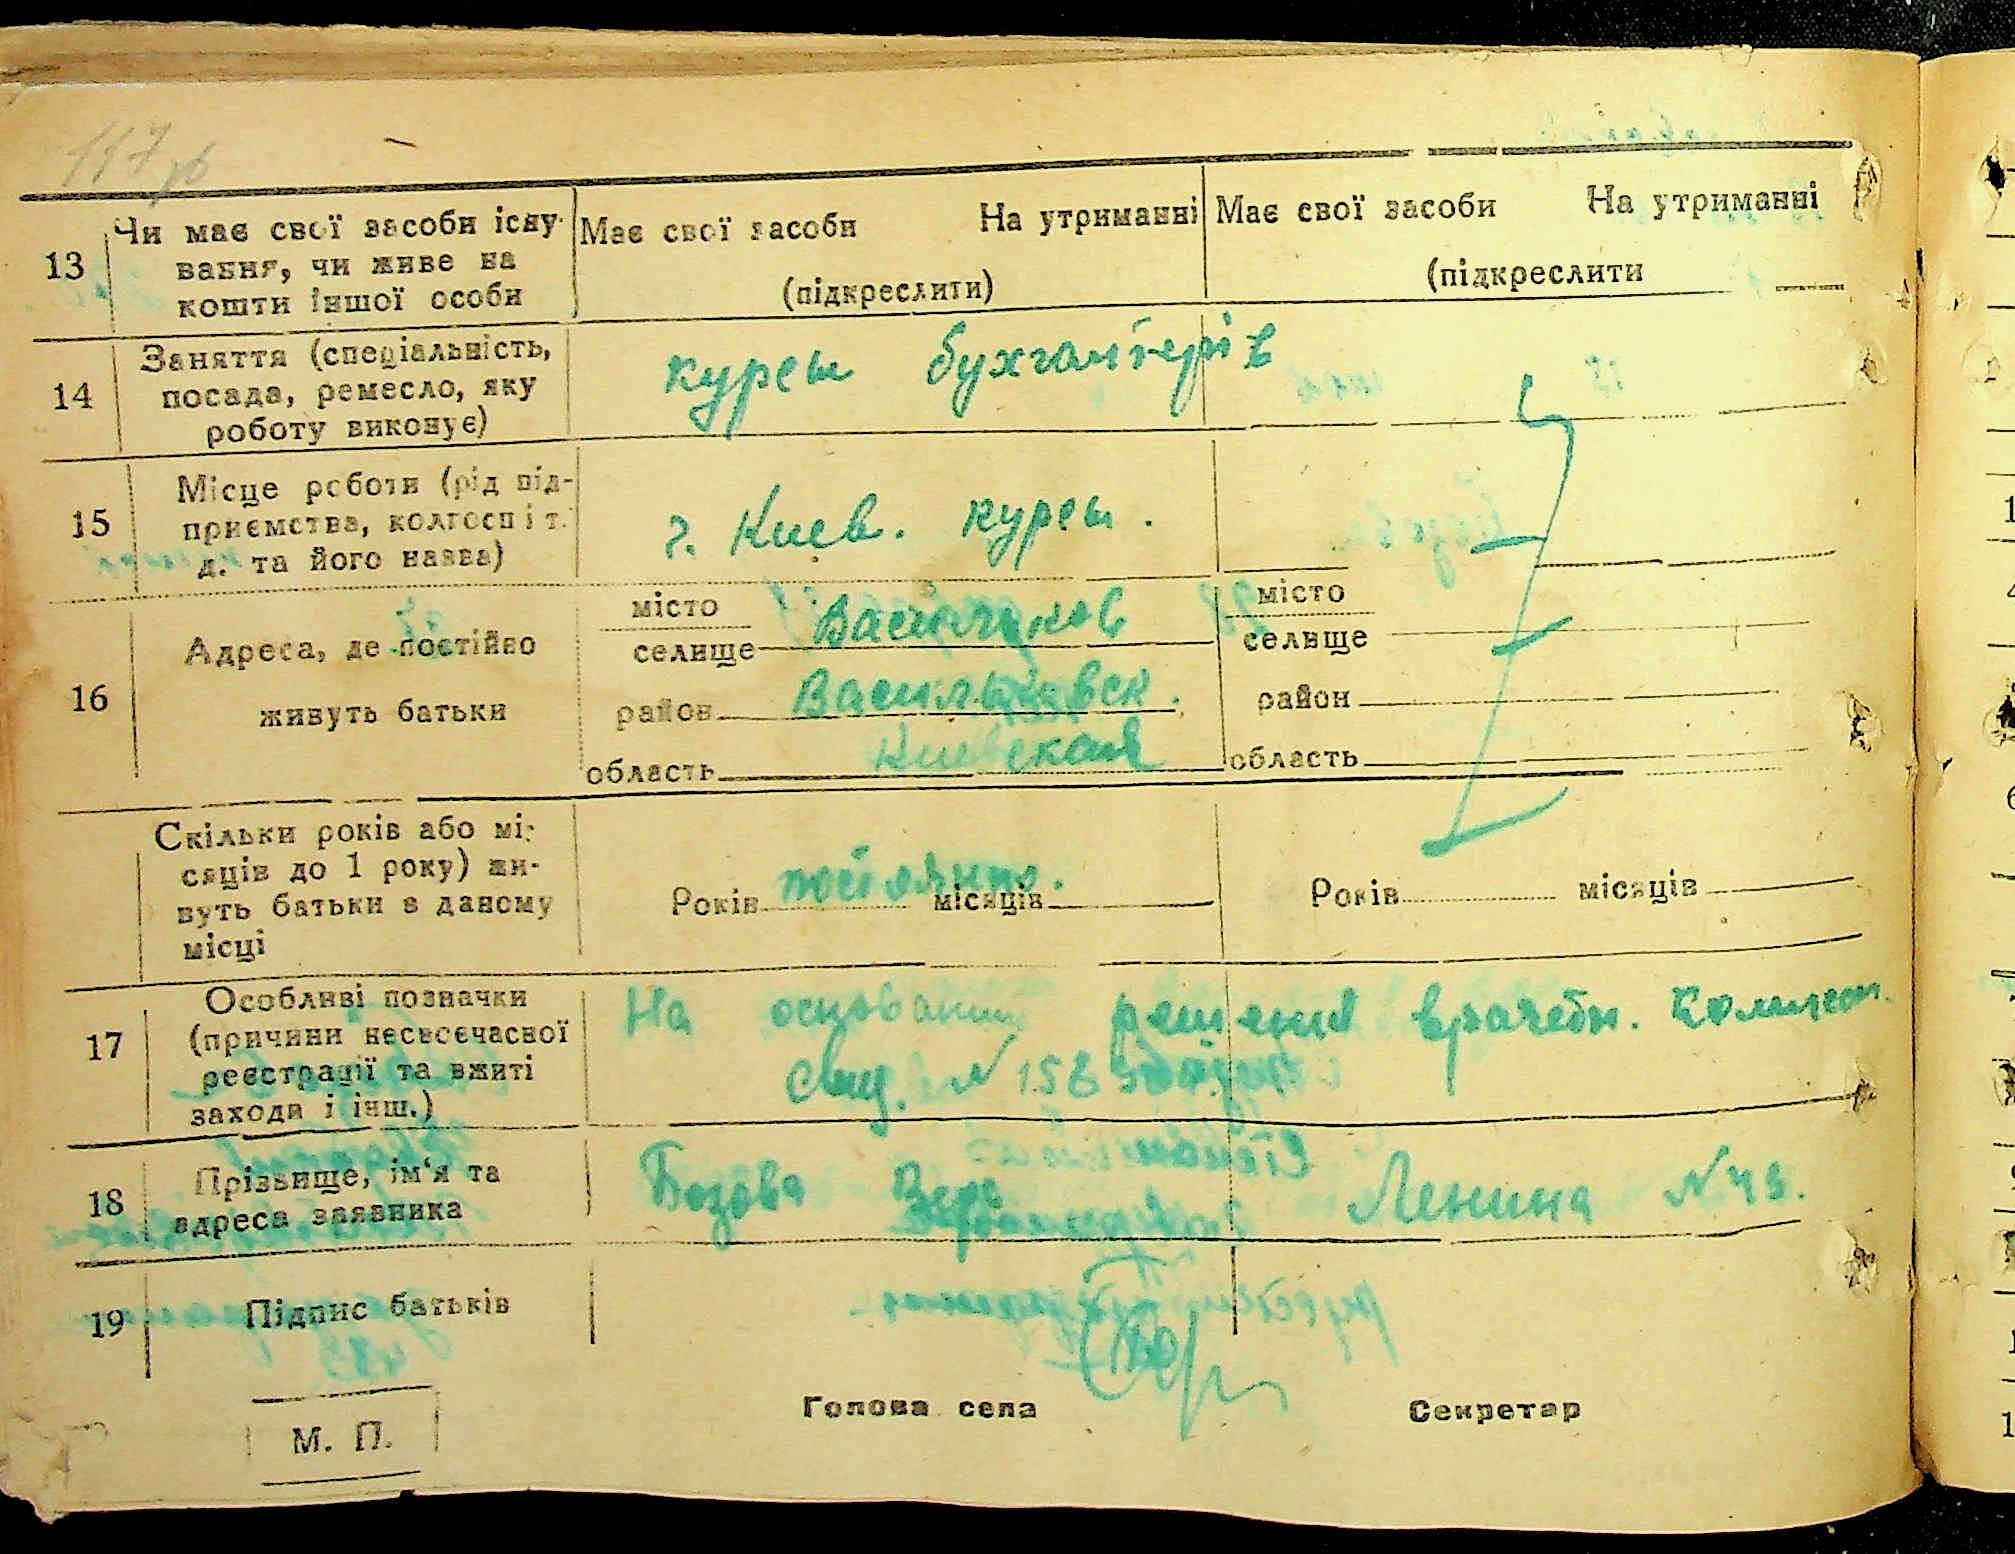 117
13
Чи має свої засоби існу-
вання, чи живе на
кошти іншої особи
Має свої засоби На утриманні
(підкреслити)
Має свої засоби На утриманні
(підкреслити
14
Заняття (спеціальність,
посада, ремесло, яку
роботу виконує)
курсы бухгалтерів
15
Місце роботи (рід під-
приємства, колгосп і т.
д. та його назва)
г. Киев. курсы.
16
Адреса, де постійно
живуть батьки
місто
селище Васильков
район Васильковск.
область Киевская
місто
селище
район
область
Скільки років або мі-
сяців до 1 року) жи-
вуть батьки в даному
місці
Років постоянно. місяців
Років місяців
17
Особливі позначки
(причини несвоєчасної
реєстрації та вжиті
заходи і інш.)
На основании решения врачебн.
N 158
18
Прізвище, ім'я та
адреса заявника
Бозова Вера Ленина N 43.
19
Підпис батьків
М. П.
Голова села
Секретар